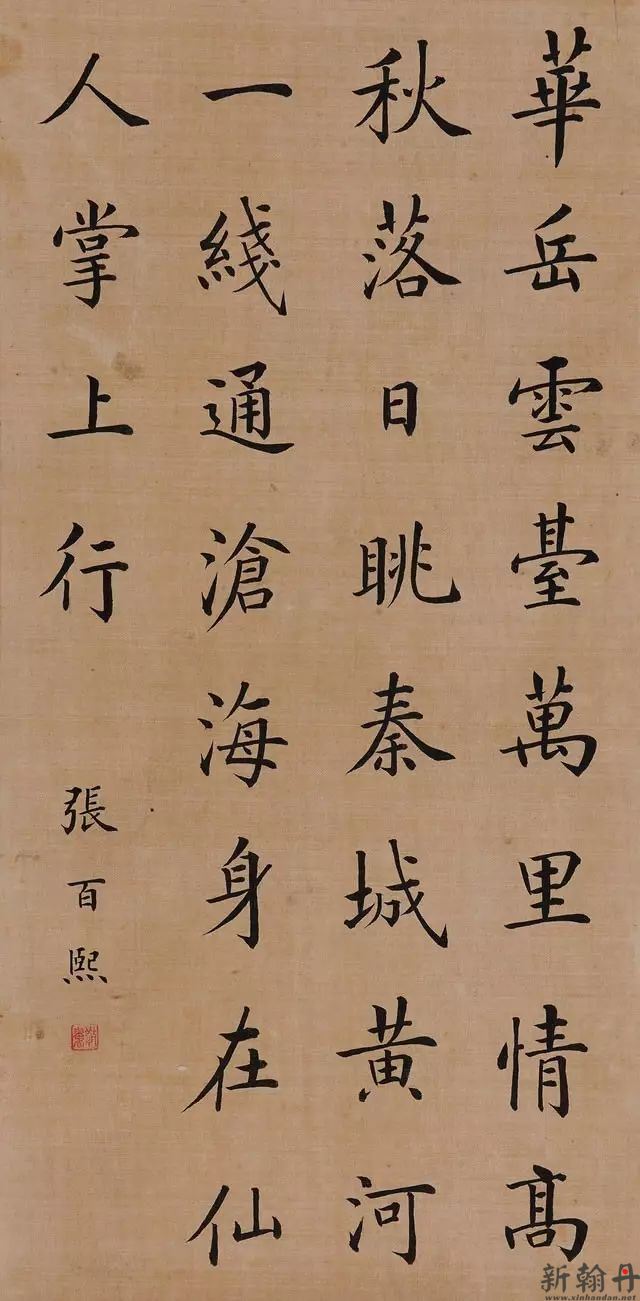 華岳雲臺萬里情高
秋落日眺秦城黄河
一綫通滄海身在仙
人掌上行
張百熙
新翰丹
www.xinhandan.net